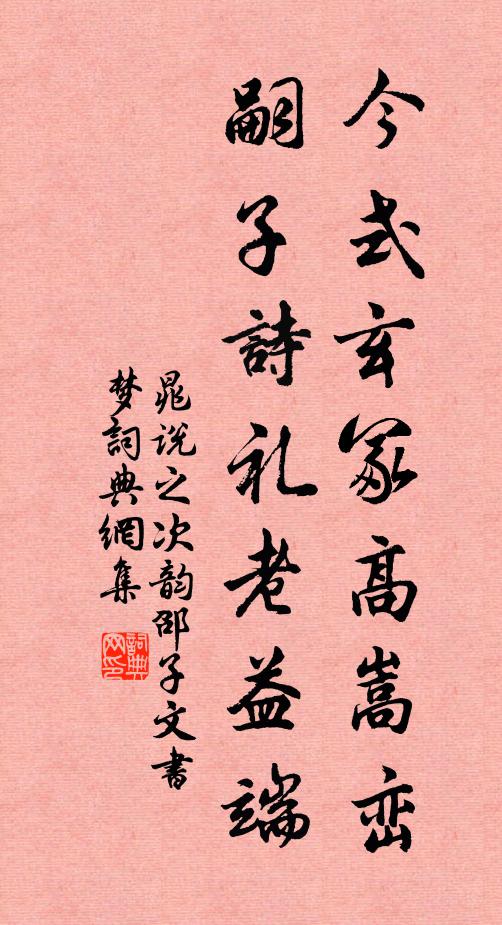 今式玄冢高嵩峦
嗣子詩礼老益端
晁说之次韵邵子文書
梦詞典網集
詞典网印